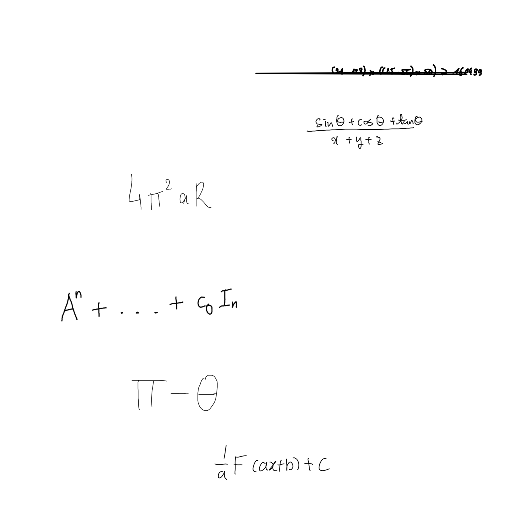 \frac{\sin\theta+\cos\theta+\tan\theta}{x+y+z}
4\pi^2 aR
A^n + ... + c_0 I_n
\pi - \theta
\frac{1}{a}F(ax+b)+C